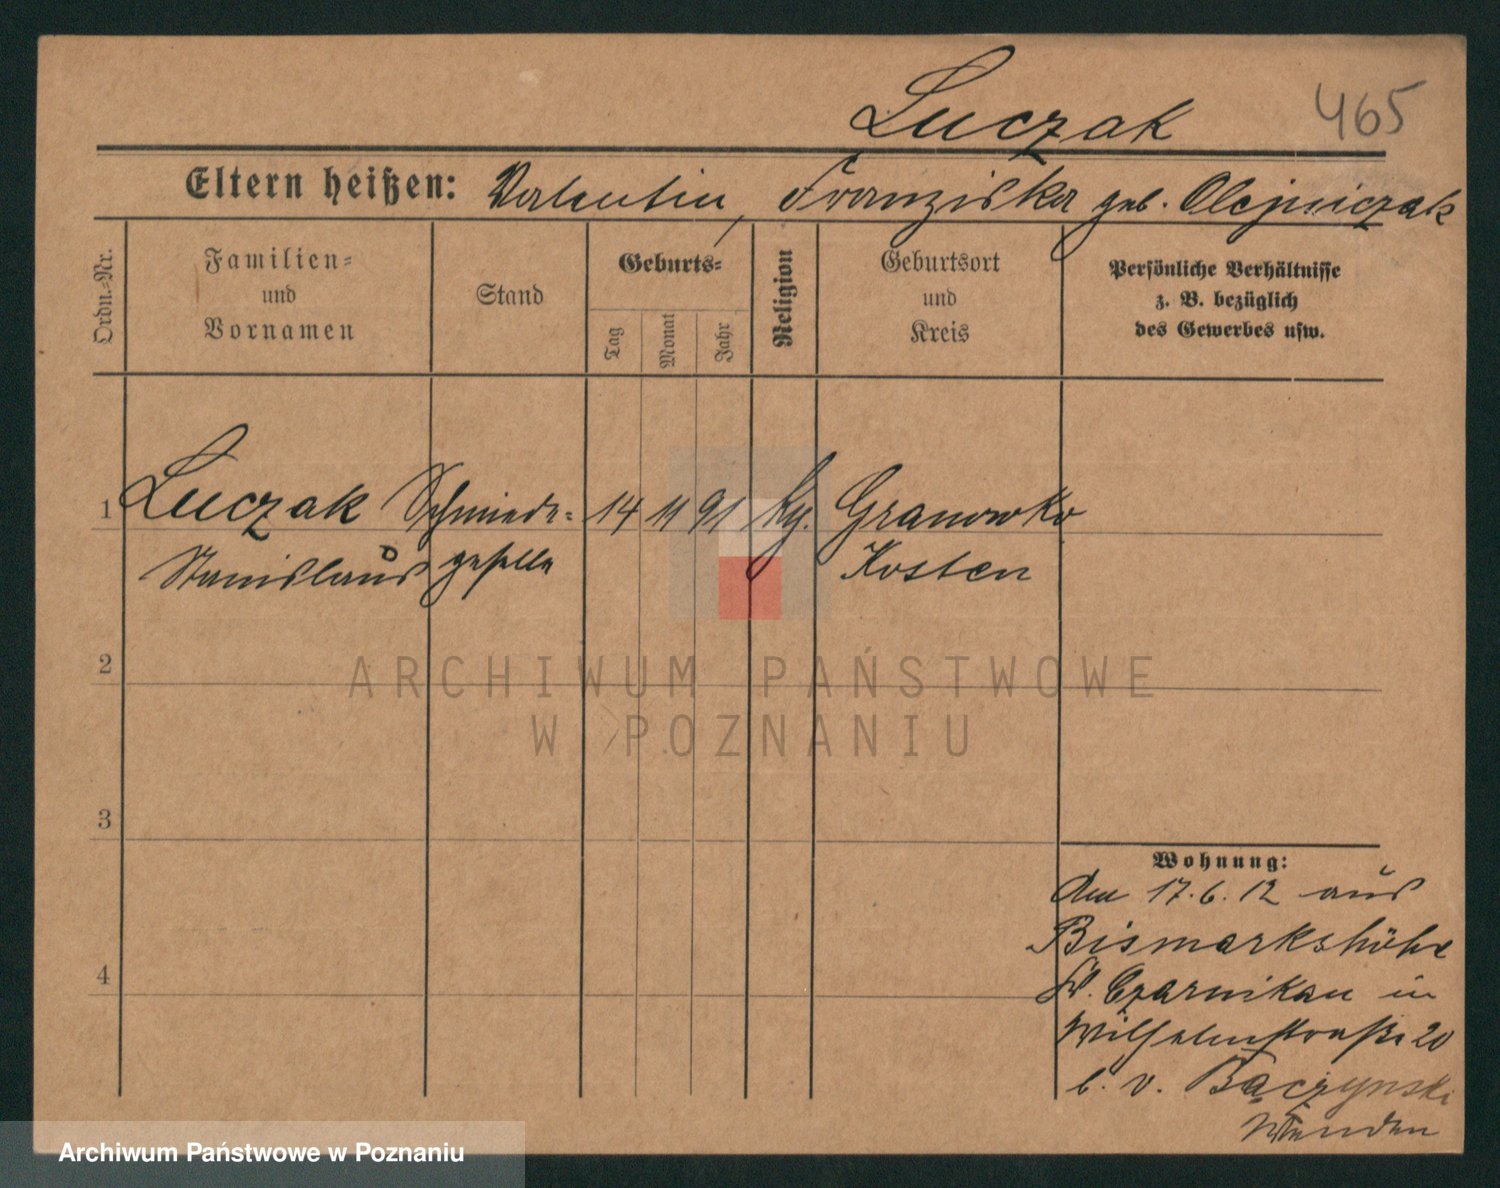 Luczak 465
Eltern heißen: Valentin, Franziska geb. Olejniczak
Ordn.-Nr.
Familien-
und
Vornamen
Stand
Geburts-
Tag
Monat
Jahr
Religion
Geburtsort
und
Kreis
Persönliche Verhältnisse
z. B. bezüglich
des Gewerbes usw.
1 Luczak Schmiede- 14 11 91 kg. Granowko
Stanislaus geselle Kosten
2
ARCHIWUM PAŃSTWOWE
W POZNANIU
3
Wohnung:
Am 17.6.12 aus
Bismarkshöhe
Kr. Czarnikau in
Wilhelmstraße 20
b. v. Baczynski
4
Archiwum Państwowe w Poznaniu